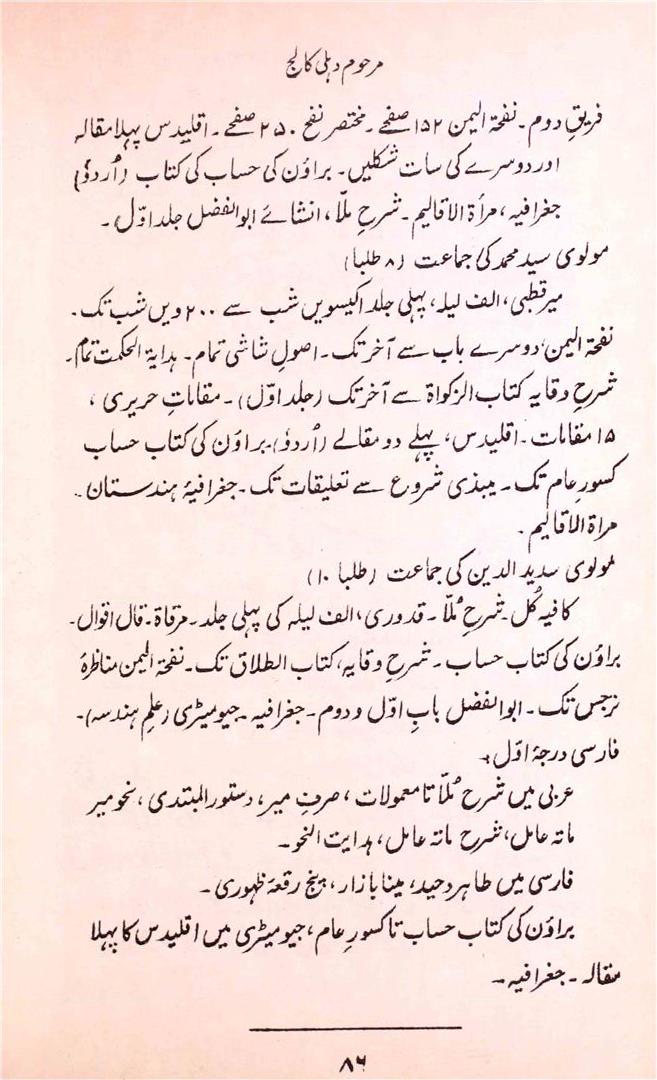 مرحوم دہلی کالج
فریقِ دوم۔ نفحۃ الیمن ۱۵۲ صفحے۔ مختصر نفح ۲۵۰ صفحے۔ اقلیدس پہلا مقالہ
اور دوسرے کی سات شکلیں۔ براؤن کی حساب کی کتاب (اُردوٗ)
جغرافیہ، مرأۃ الاقالیم۔ شرحِ ملّا، انشائے ابوالفضل جلد اوّل۔
مولوی سید محمد کی جماعت (۸ طلبا)
میر قطبی، الف لیلہ، پہلی جلد اکیسویں شب سے ۲۰۰ ویں شب تک۔
نفحۃ الیمن، دوسرے باب سے آخر تک۔ اصولِ شاشی تمام۔ ہدایۃ الحکمت تمام۔
شرحِ وقایہ کتاب الزکواۃ سے آخر تک (جلد اوّل)۔ مقاماتِ حریری،
۱۵ مقامات۔ اقلیدس، پہلے دو مقالے (اُردوٗ) براؤن کی کتاب حساب
کسورِ عام تک۔ میبذی شروع سے تعلیقات تک۔ جغرافیۂ ہندستان۔
مراۃ الاقالیم۔
مولوی سدید الدین کی جماعت (طلبا ۱۰)
کافیہ کُل۔ شرحِ مُلّا۔ قدوری، الف لیلہ کی پہلی جلد۔ مرقاۃ۔ قال اقوال۔
براؤن کی کتاب حساب۔ شرحِ وقایہ، کتاب الطلاق تک۔ نفحۃ الیمن مناظرۂ
نرجس تک۔ ابوالفضل بابِ اوّل و دوم۔ جغرافیہ۔ جیومیٹری (علمِ ہندسہ)۔
فارسی درجۂ اوّل۔
عربی میں شرح مُلّا تا معمولات، صرفِ میر، دستور المبتدی، نحو میر
ماتہ عامل، شرح ماتہ عامل، ہدایت النحو۔
فارسی میں طاہر وحید، مینا بازار، پنج رقعۂ ظہوری۔
براؤن کی کتاب حساب تا کسورِ عام، جیومیٹری میں اقلیدس کا پہلا
مقالہ۔ جغرافیہ۔
۸۶